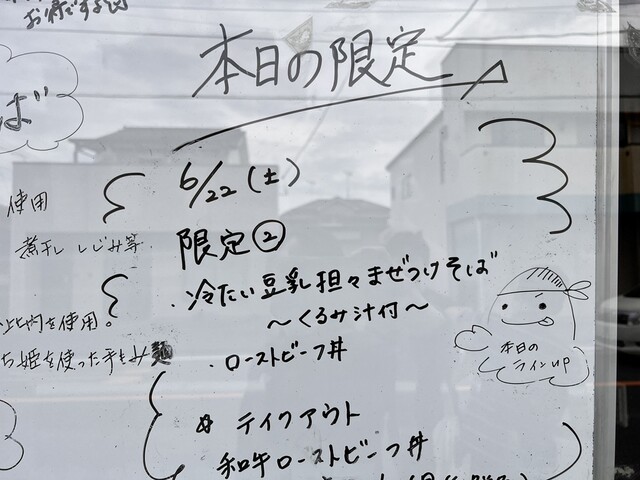 本日の限定
ば
6/22(土)
使用
煮干 しじみ等
限定②
・冷たい豆乳担々まぜつけそば
〜くるみ汁付〜
を使用。
姫を使った手もみ麺
・ローストビーフ丼
本日の
ラインUP
テイクアウト
和牛ローストビーフ丼